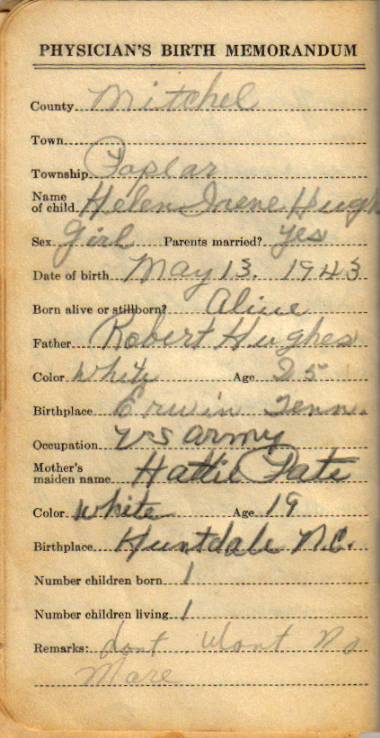 PHYSICIAN'S BIRTH MEMORANDUM
County Mitchel
Town
Township Poplar
Name of child Helen Irene Hugh
Sex Girl Parents married? yes
Date of birth May 13. 1943
Born alive or stillborn? Alive
Father Robert Hughes
Color White Age 25
Birthplace Erwin Tenn.
Occupation US army
Mother's maiden name Hattie Pate
Color White Age 19
Birthplace Huntdale N.C.
Number children born 1
Number children living 1
Remarks: dont Wont No
More